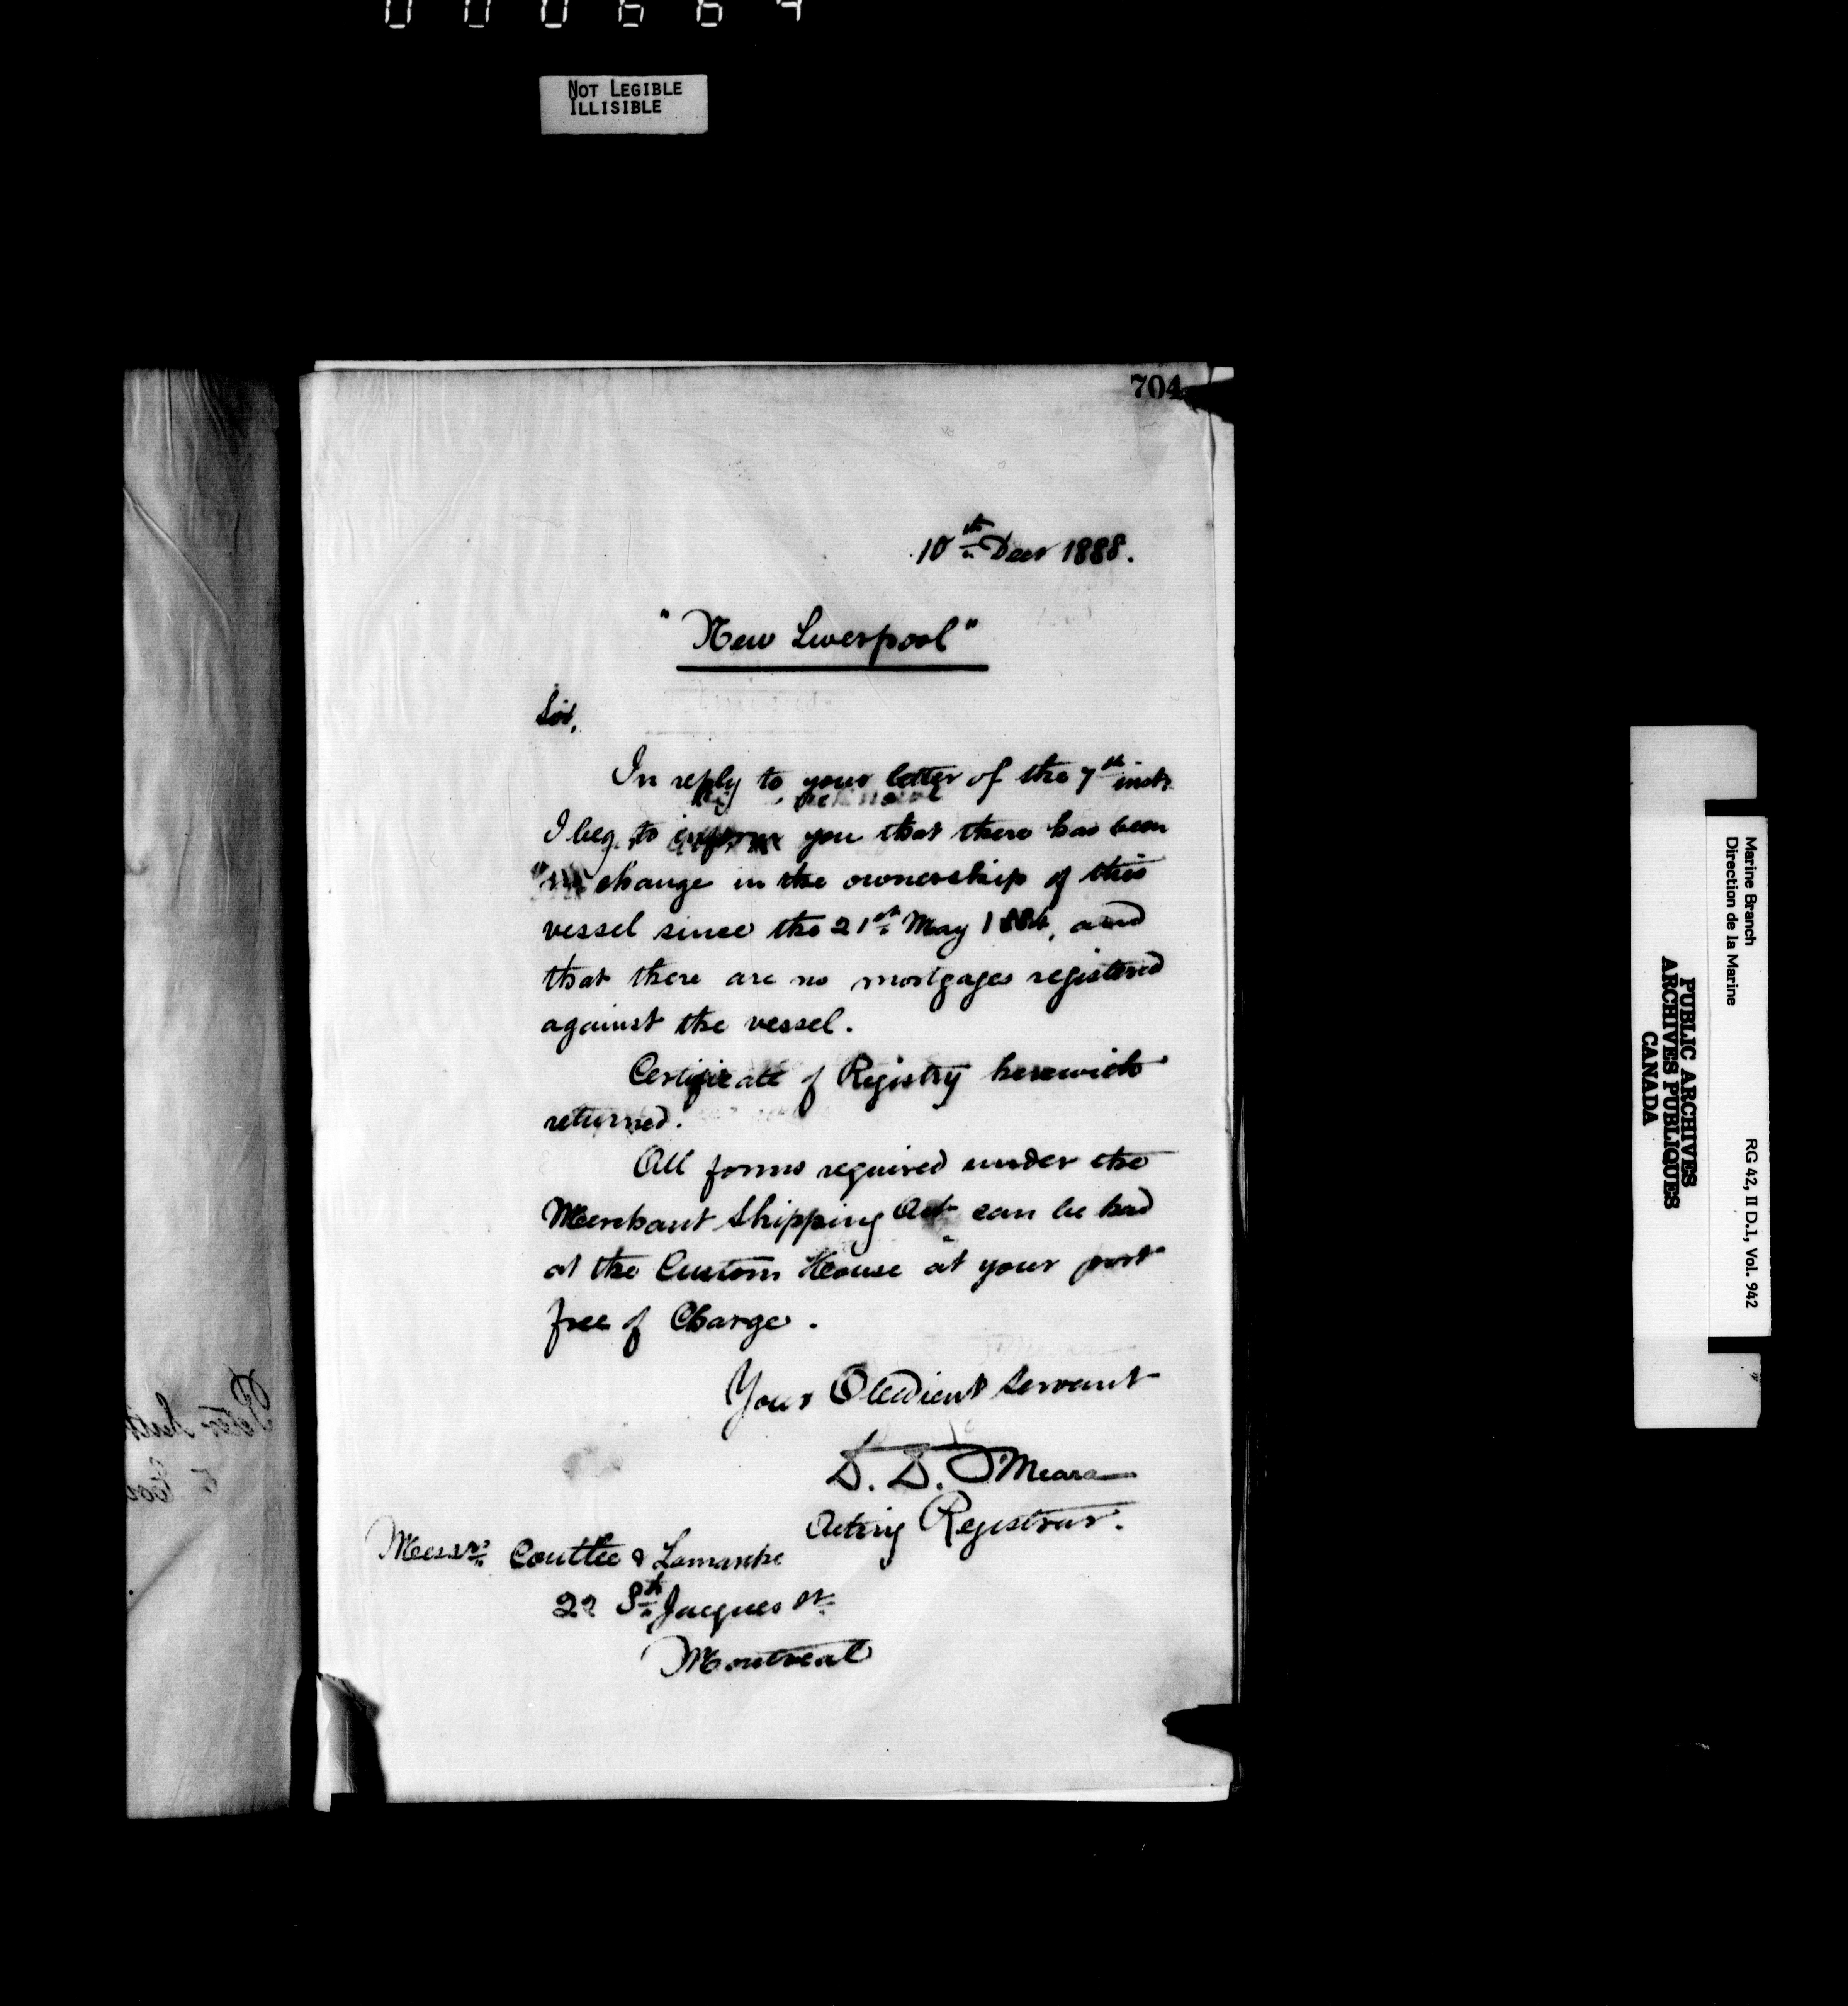 NOT LEGIBLE
ILLISIBLE
704
10th Decr 1888.
"New Liverpool"
Sir,
In reply to your letter of the 7th inst.
I beg to inform you that there has been
no change in the ownership of this
vessel since the 21st May 1884, and
that there are no mortgages registered
against the vessel.
Certificate of Registry herewith
returned.
All forms required under the
Merchant Shipping Act can be had
at the Custom House at your port
free of Charge.
Your Obedient Servant
D. D. O'Meara
Acting Registrar.
Messrs Couttee & Lamarche
22 St Jacques St
Montreal
Marine Branch
Direction de la Marine
RG 42, II D.1, Vol. 942
PUBLIC ARCHIVES
ARCHIVES PUBLIQUES
CANADA